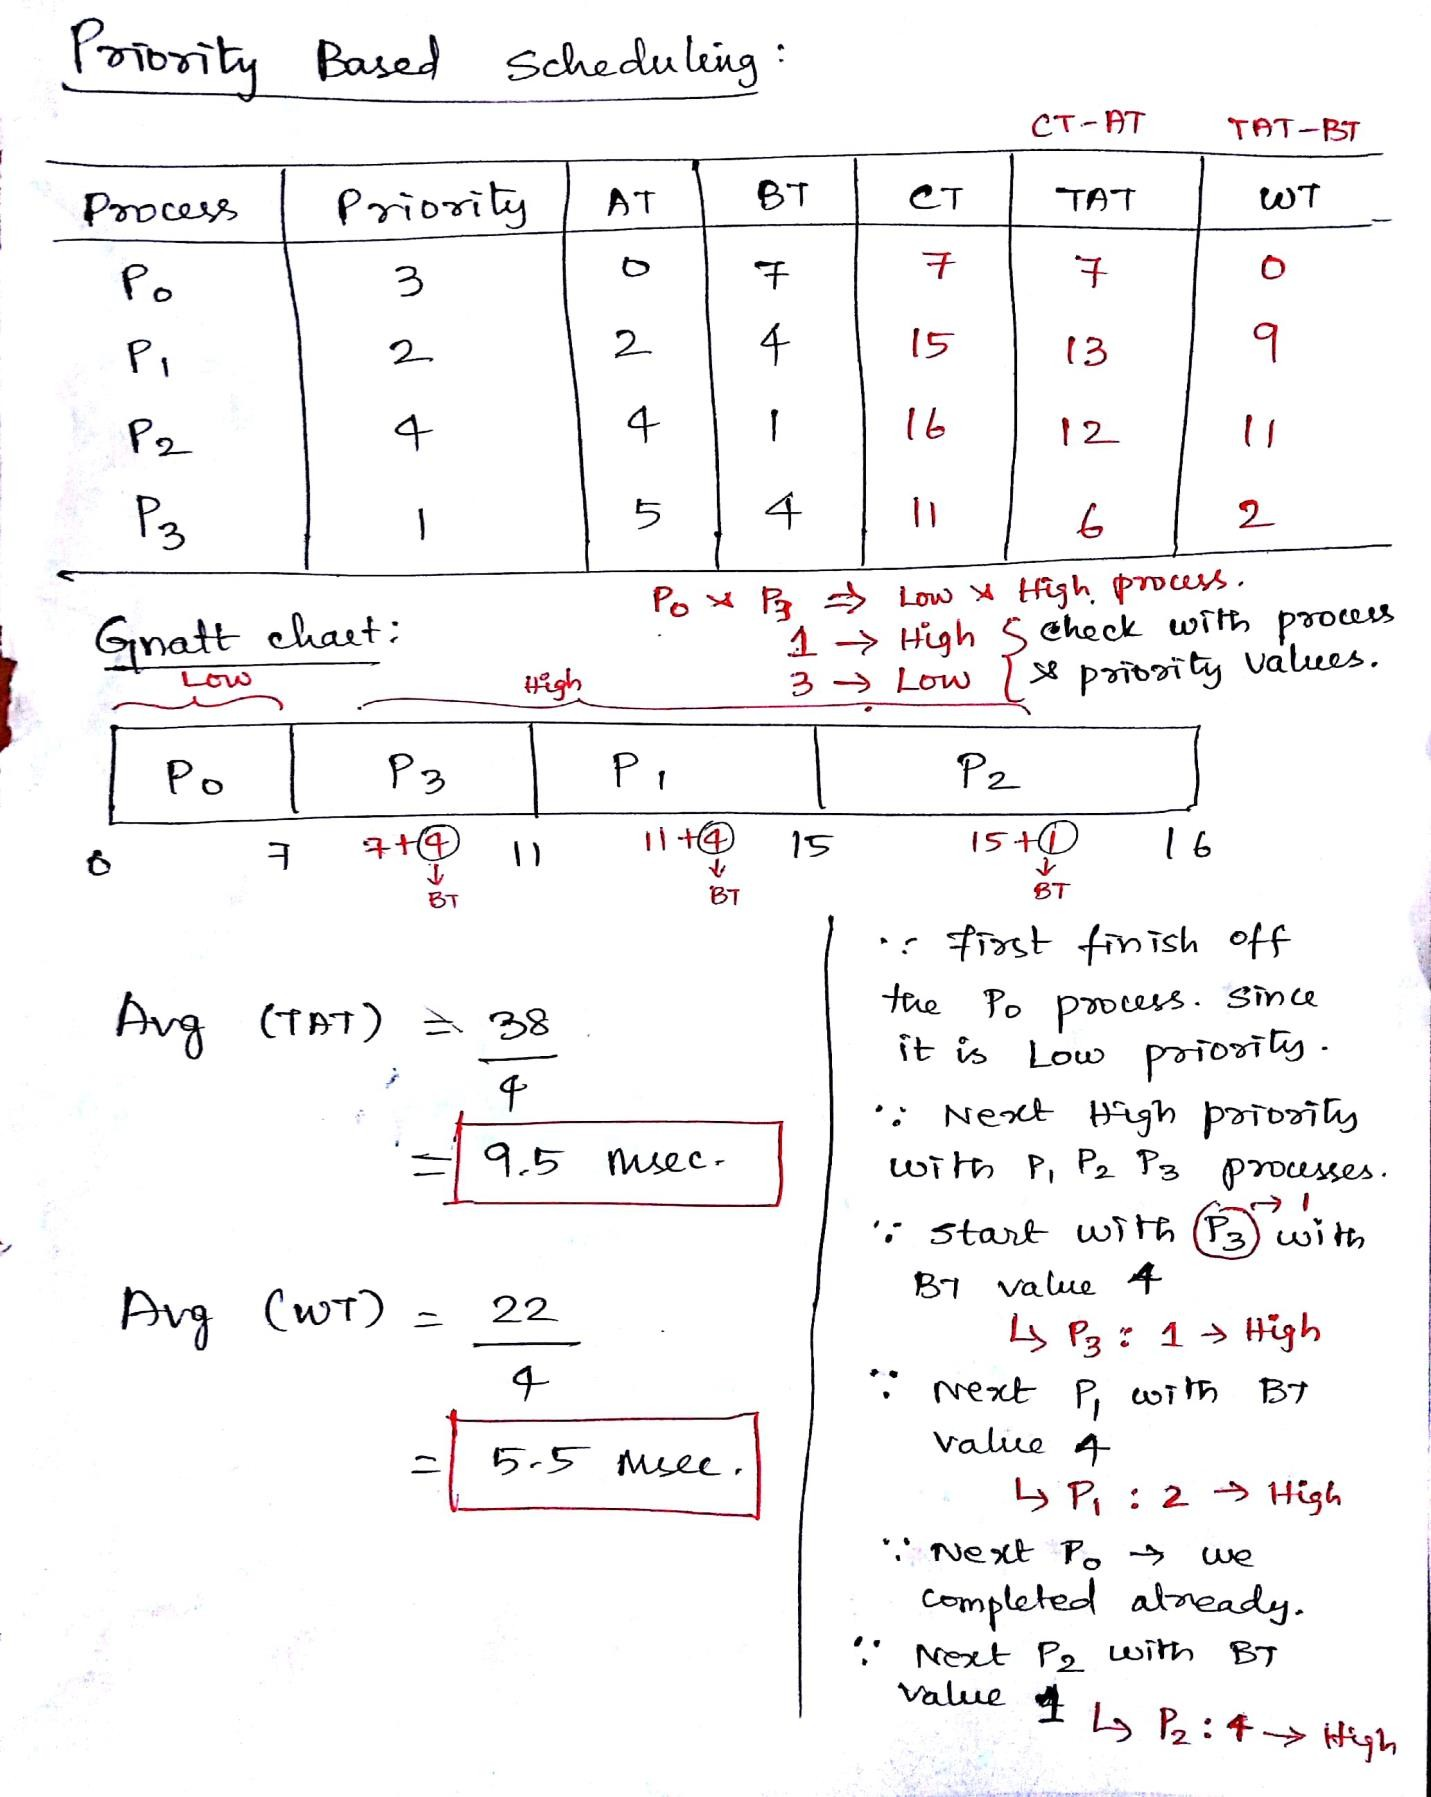 Priority Based Scheduling :
CT-AT TAT-BT
Process Priority AT BT CT TAT WT
P0 3 0 7 7 7 0
P1 2 2 4 15 13 9
P2 4 4 1 16 12 11
P3 1 5 4 11 6 2
P0 & P3 ⇒ Low & High process.
1 → High { Check with process
3 → Low { & priority values.
Gnatt chart :
Low High
P0 P3 P1 P2
0 7 7+4 11 11+4 15 15+1 16
BT BT BT
Avg (TAT) = 38
4
= 9.5 msec.
Avg (WT) = 22
4
= 5.5 msec.
∵ First finish off
the P0 process. Since
it is Low priority.
∵ Next High priority
with P1 P2 P3 processes.
∵ Start with P3 → 1 with
BT value 4
↳ P3 : 1 → High
∵ Next P1 with BT
value 4
↳ P1 : 2 → High
∵ Next P0 → we
completed already.
∵ Next P2 with BT
value 1
↳ P2 : 4 → High